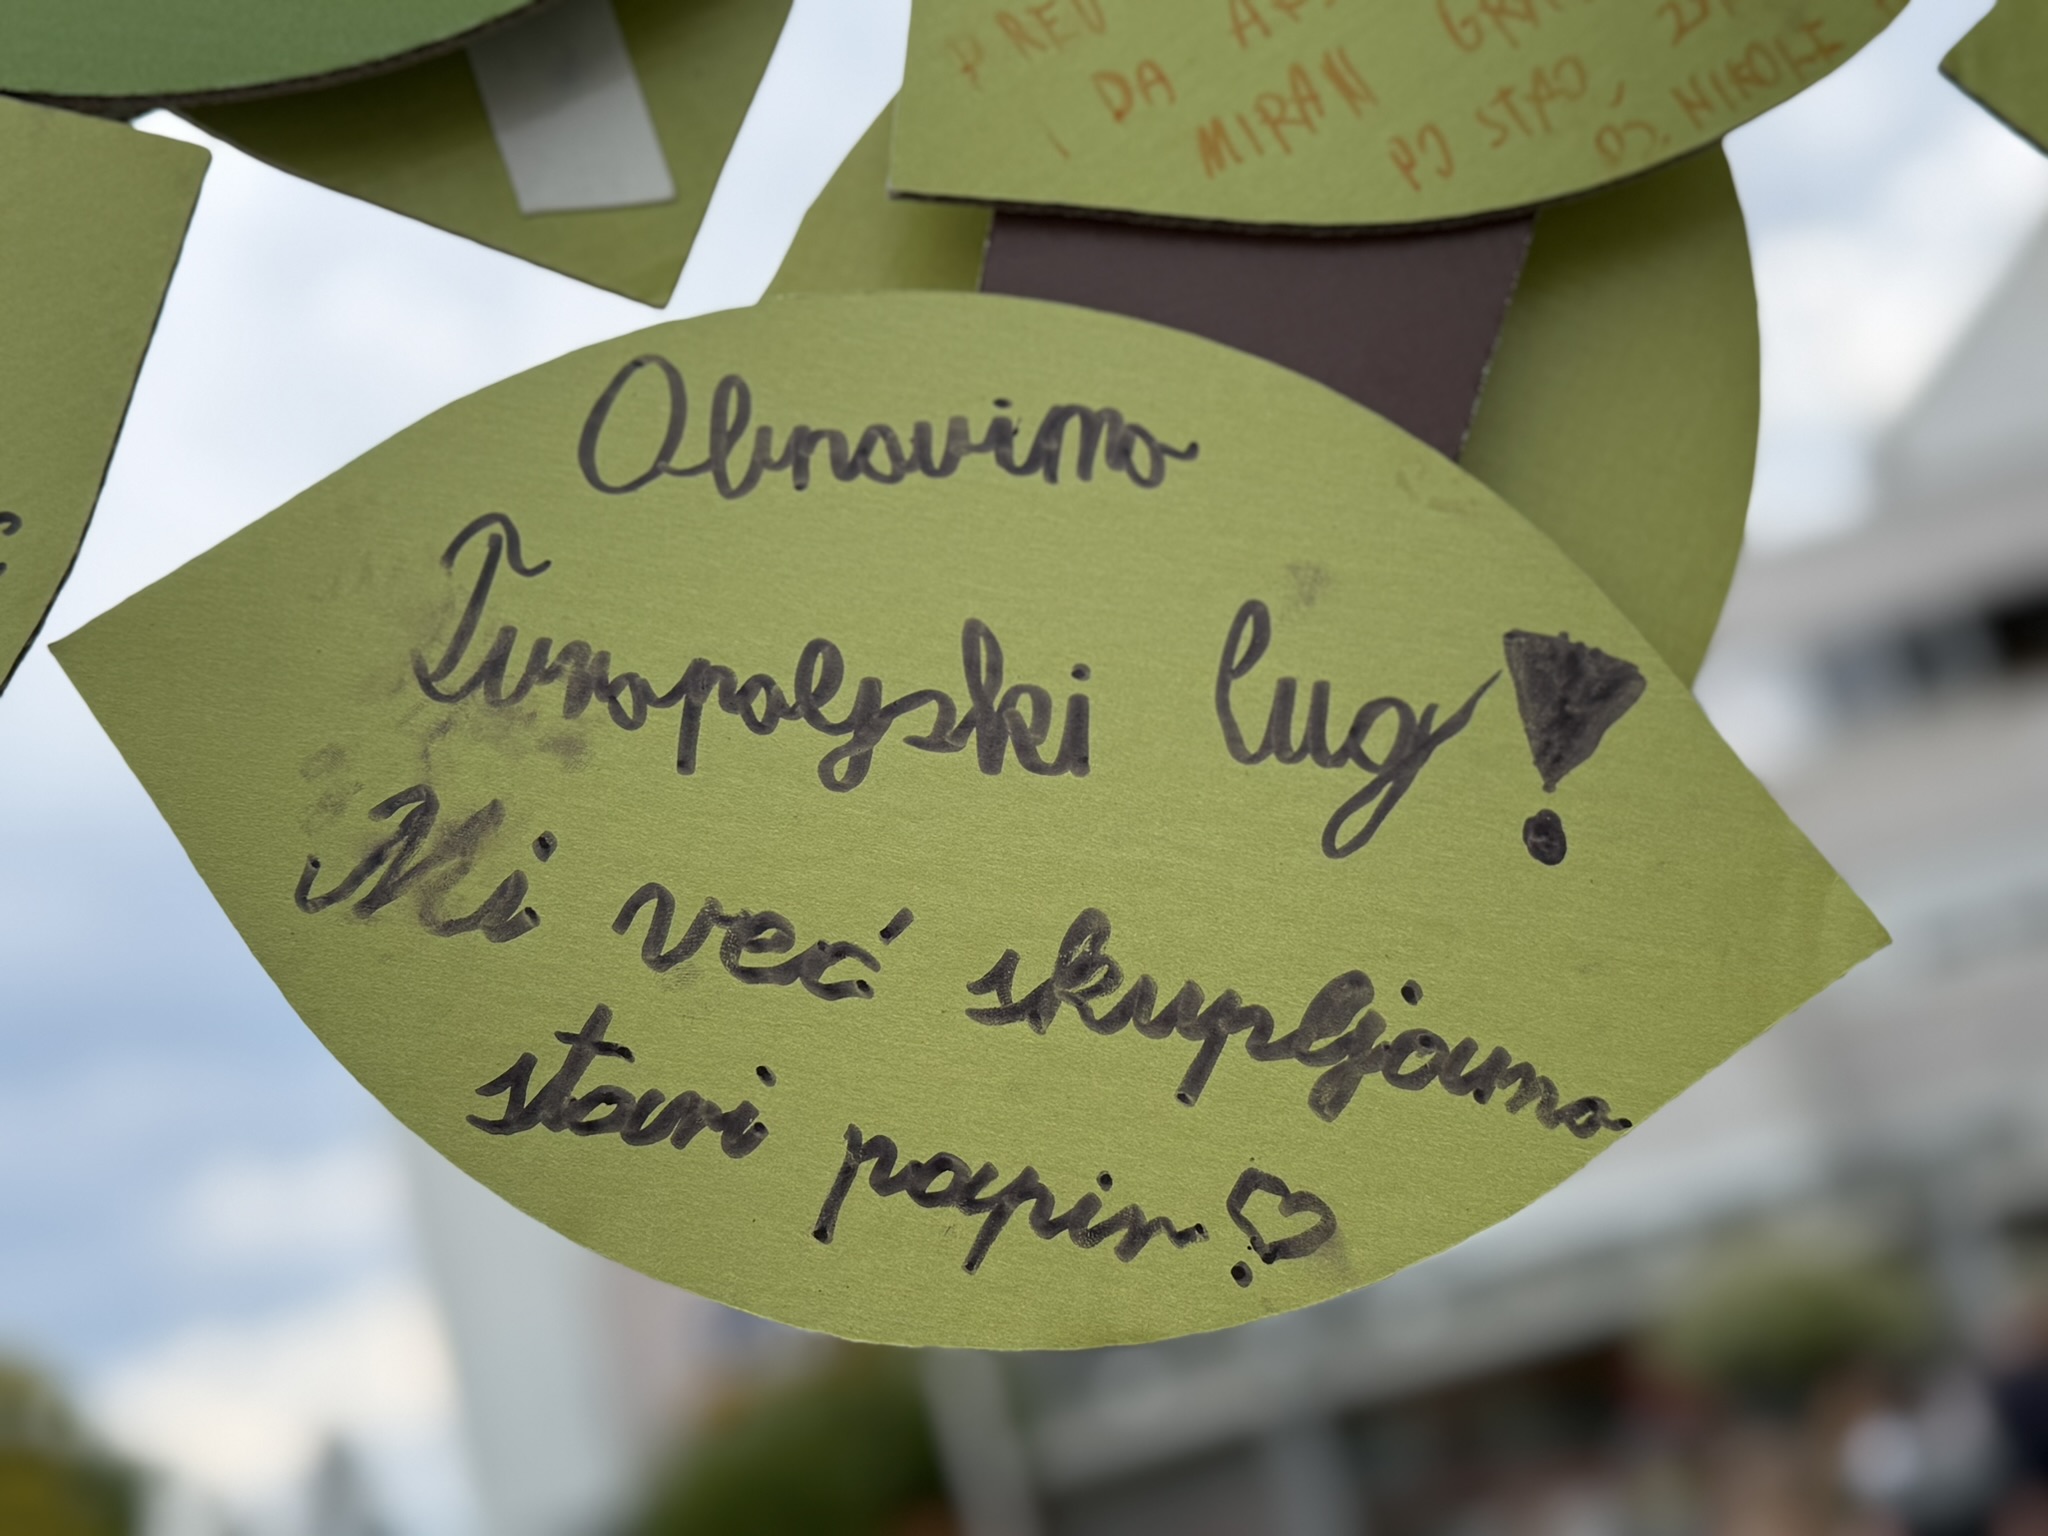 DA
MIRAN
PO STAO,
OŠ. NIKOLE
Obnovimo
Turopoljski lug!
Mi već skupljamo
stari papir